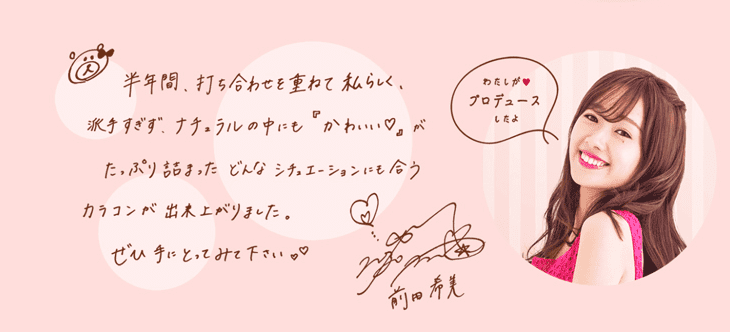 半年間、打ち合わせを重ねて私らしく、
派手すぎず、ナチュラルの中にも『かわいい♡』が
たっぷり詰まったどんなシチュエーションにも合う
カラコンが出来上がりました。
ぜひ手にとってみて下さい♡
前田希美
わたしが♥
プロデュース
したよ